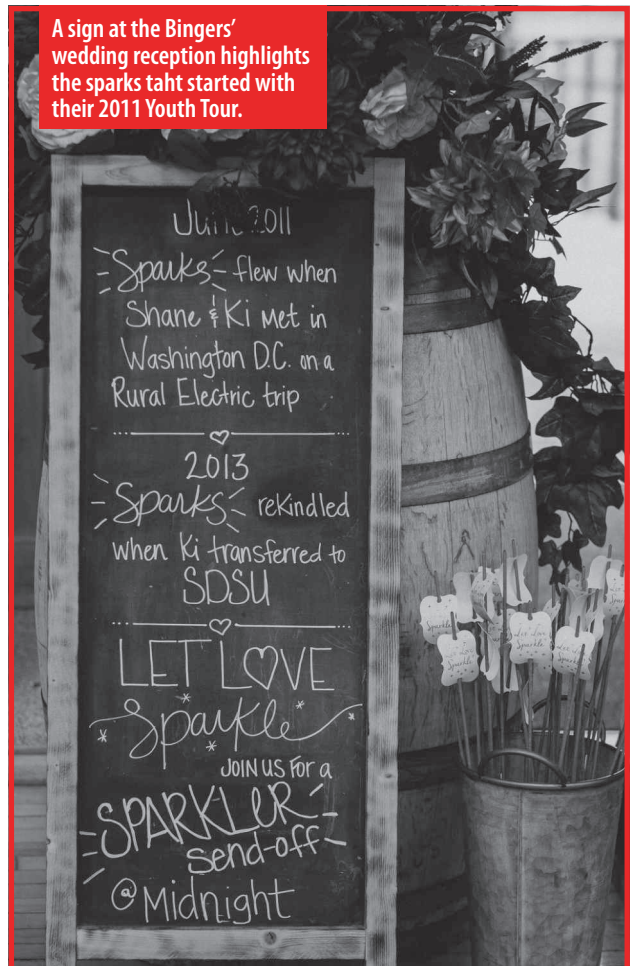 A sign at the Bingers’
wedding reception highlights
the sparks taht started with
their 2011 Youth Tour.
June 2011
Sparks flew when
Shane & Ki Met in
Washington D.C. on a
Rural Electric trip
2013
Sparks rekindled
when Ki transferred to
SDSU
LET LOVE
Sparkle
JOIN US FOR a
SPARKLER
send-off
@ Midnight
Let Love
Sparkle